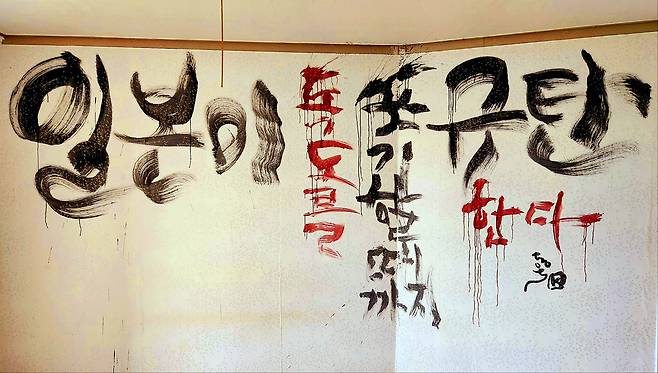 일본이
독도를
포기할때까지
규탄
한다